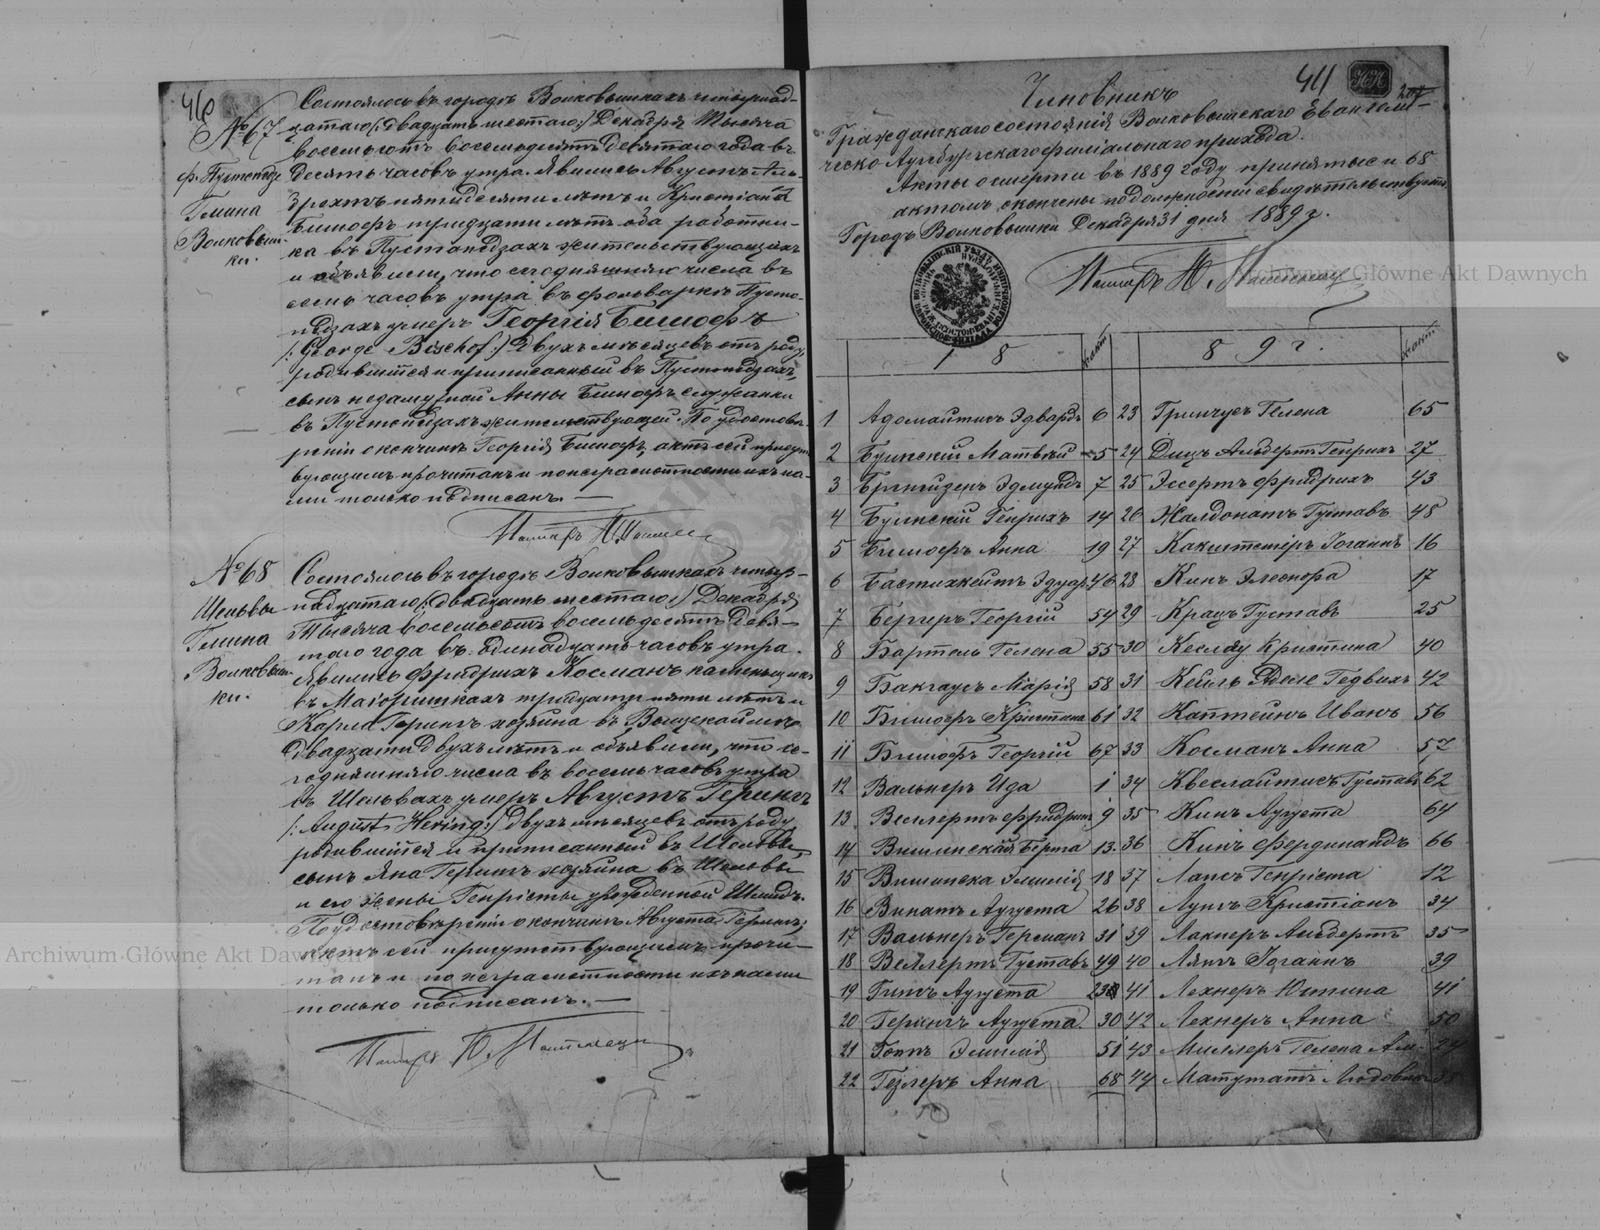 410
Состоялось въ городѣ Волковышкахъ четырнад-
№ 67
цатаго /: двадцать шестаго :/ Декабря тысяча
восемьсотъ восемьдесятъ девятаго года въ
ф. Пустопедзе
десять часовъ утра. Явились Августъ Аль-
Гмина
брехтъ пятидесяти лѣтъ и Христіанъ
Волковыш-
Бишофъ тридцати лѣтъ оба работни-
ки.
ка въ Пустопедзахъ жительствующихъ
и объявили, что сегодняшняго числа въ
семь часовъ утра въ фольваркѣ Пусто-
педзахъ умеръ Георгій Бишофъ
/: George Bischof :/ двухъ мѣсяцевъ отъ роду,
родившійся и приписанный въ Пустопедзахъ,
сынъ незамужной Анны Бишофъ служанки
въ Пустопедзахъ жительствующей. По удостовѣ-
реніи о кончинѣ Георгія Бишофъ, актъ сей присут
вующимъ прочитанъ и по неграмотности ихъ на-
ми только подписанъ. —
Пасторъ
№ 68
Состоялось въ городѣ Волковышкахъ четыр-
Шельвы
надцатаго /: двадцать шестаго :/ Декабря
Гмина
тысяча восемьсотъ восемьдесятъ девя-
таго года въ одинадцать часовъ утра.
Волковыш-
Явились Фридрихъ Косманъ каменщикъ
ки.
въ Маіоришкахъ тридцати пяти лѣтъ и
Карлъ Герингъ хозяина въ
двадцати двухъ лѣтъ и объявили, что се-
годняшняго числа въ восемь часовъ утра
въ Шельвахъ умеръ Августъ Герингъ
/: August Hering :/ двухъ мѣсяцевъ отъ роду
родившійся и приписанный въ Шельвы,
сынъ Яна Герингъ хозяина въ Шельвы
и его жены Генріеты урожденной
По удостовѣреніи о кончинѣ Августа Герингъ,
актъ сей присутствующимъ прочи-
танъ и по неграмотности ихъ нами
только подписанъ. —
Пасторъ Ю.
411
Чиновникъ
Гражданскаго состоянія Волковышскаго Евангели-
ческо Аугсбургскаго филіальнаго прихода.
Акты о смерти въ 1889 году приняты и 68
актомъ окончены по должности свидѣтельствуетъ
Городъ Волковышки Декабря 31 дня 1889 г.
Пасторъ Ю.
1 8 актъ 8 9 г. актъ
1 Адомайтисъ Эдвардъ 6 23 Гринчусъ Гелена 65
2 Буинскій Матвѣй 5 24 Дицъ Альбертъ Генрихъ 27
3 Эдмундъ 7 25 Эссертъ Фридрихъ 43
4 Буинскій Генрихъ 14 26 Жалдонатъ Густавъ 48
5 Бишофъ Анна 19 27 Іоганнъ 16
6 Бастихкейтъ Эдуар 46 28 Кинъ Элеонора 17
7 Бергеръ Георгій 54 29 Крацъ Густавъ 25
8 Бартель Гелена 55 30 Кристина 40
9 Бакгаусъ Марія 58 31 Кейль Гедвихъ 42
10 Бишофъ Кристина 61 32 Каптейнъ Иванъ 56
11 Бишофъ Георгій 67 33 Косманъ Анна 57
12 Вальнеръ Ида 1 34 Квеслайтисъ Густавъ 62
13 Веллертъ Фридрихъ 9 35 Кинъ Аугуста 64
14 Берта 13 36 Кинъ Фердинандъ 66
15 Вишинска Эмилія 18 37 Лапсъ Генріета 12
16 Винатъ Аугуста 26 38 Кристіанъ 34
17 Вальнеръ Германъ 31 39 Лакнеръ Альбертъ 35
18 Веллертъ Густавъ 49 40 Іоганнъ 39
19 Аугуста 23 41 Лехнеръ Юстина 41
20 Герингъ Аугуста 30 42 Лехнеръ Анна 50
21 Гоппъ Эмилія 51 43 Миллеръ Гелена
22 Гезлеръ Анна 68 44 Матутатъ
Archiwum Główne Akt Dawnych
Archiwum Główne Akt Dawnych